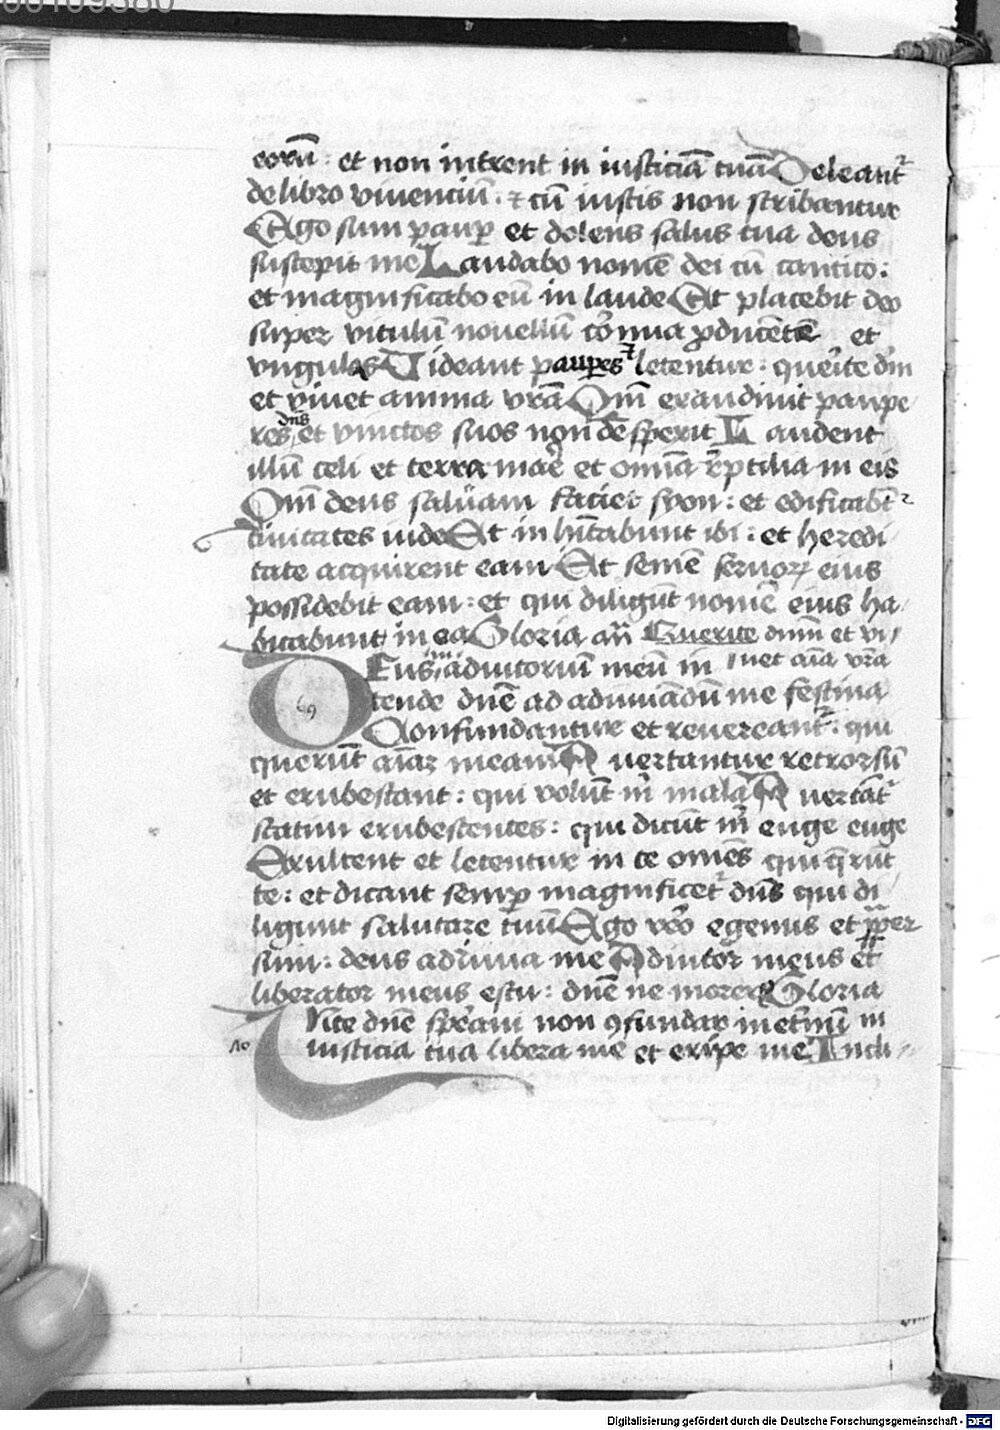 eorū : et non intrent in iusticiā tuā Deleant᷑
de libro viuenciū : ⁊ cū iustis non scribantur
Ego sum paup̲ et dolens salus tua deus
suscepit me Laudabo nomē dei cū cantico :
et magnificabo eū in laude Et placebit deo
super vitulū nouellū cornua ꝓducētē et
vngulas Videant paup̲es ⁊ letentur : querite dm̄
et viuet anima vrā Qm̄ exaudiuit paupe
res dn̄s et vinctos suos non despexit Laudent
illū celi et terra mare et omīa reptilia in eis
Qm̄ deus saluam faciet syon : et edificabt᷑
ciuitates iude Et inhītabunt ibi : et heredi
tate acquirent eam Et semē seruoꝝ eius
possidebit eam : et qui diligūt nomē eius ha
bitabunt in ea Gloria an̄ Querite dnm̄ et vi
Eus in adiutoriū meū in uet aīa vrā
tende dn̄e ad adiuuādū me festina
69
Confundantur et reuereant᷑ : qui
querūt aīaꝫ meam Auertantur retrorsū
et erubescant : qui volūt m̄ mala Auertāt᷑
statim erubescentes : qui dicūt m̄ euge euge
Exultent et letentur in te omēs qui q̄rūt
te : et dicant semp̲ magnificet᷑ dn̄s qui di
ligunt salutare tuū Ego vero egenus et pper
sum : deus adiuua me Adiutor meus et
liberator meus es tu : dn̄e ne moreris Gloria
N te dn̄e speraui non ꝯfundar in eternū in
70
iusticia tua libera me et eripe me Incli
Digitalisierung gefördert durch die Deutsche Forschungsgemeinschaft - DFG